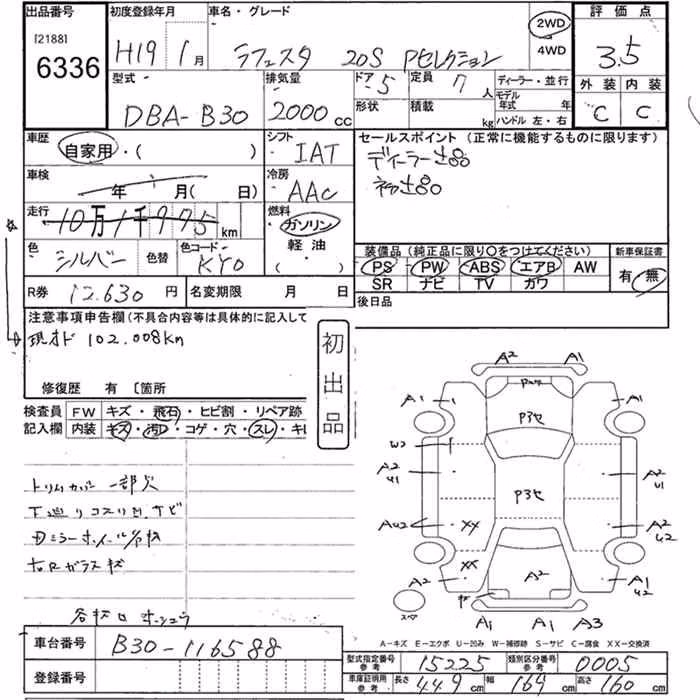 出品番号
[2188]
6336
初度登録年月
H19年 1月
車名・グレード
ラフェスタ 20S Pセレクション
2WD
4WD
評価点
3.5
外装 内装
C C
型式
DBA-B30
排気量
2000cc
ドア 5
形状
定員 7人
積載 kg
ディーラー・並行
モデル年式 年
ハンドル左・右
車歴
自家用・( )
シフト
IAT
セールスポイント (正常に機能するものに限ります)
ディーラー出品
初出品
車検
年 月(日)
冷房
AAC
走行
10万1千975km
燃料
ガソリン
軽油
( )
色
シルバー
色替
色コード
KY0
装備品 (純正品に限り〇をつけてください)
PS PW ABS エアB AW
SR ナビ TV カワ
新車保証書
有・無
R券 12.630円
名変期限 月 日
後日品
注意事項申告欄 (不具合内容等は具体的に記入して
現オド 102.008km
初出品
修復歴 有 〔箇所
検査員記入欄
FW キズ・飛石・ヒビ割・リペア跡
内装 キズ・汚レ・コゲ・穴・スレ・キレ
トリムカバー一部欠
下廻りコスリ凹、サビ
A2 A1
P3セ
A1 A1
W2
A2
U1
P3セ
A2
U1
AU2 XX
A2
U2
A2 XX
A2
A1
U2
スペア
A1 A1 A3
A-キズ E-エクボ U-凹み W-補修跡 S-サビ C-腐食 XX-交換済
車台番号 B30-116588
登録番号
型式指定番号 参考 15225
類別区分番号 参考 0005
車庫証明用 参考 長さ 449cm 幅 169cm 高さ 160cm